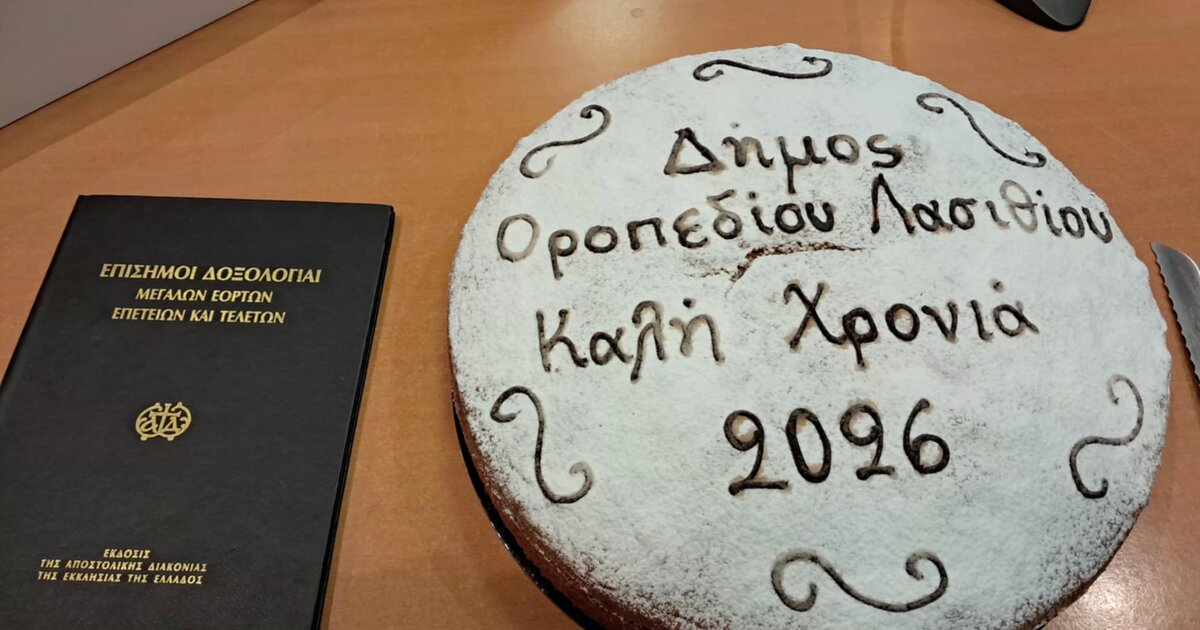 ΕΠΙΣΗΜΟΙ ΔΟΞΟΛΟΓΙΑΙ
ΜΕΓΑΛΩΝ ΕΟΡΤΩΝ
ΕΠΕΤΕΙΩΝ ΚΑΙ ΤΕΛΕΤΩΝ
ΕΚΔΟΣΙΣ
ΤΗΣ ΑΠΟΣΤΟΛΙΚΗΣ ΔΙΑΚΟΝΙΑΣ
ΤΗΣ ΕΚΚΛΗΣΙΑΣ ΤΗΣ ΕΛΛΑΔΟΣ
Δήμος
Οροπεδίου Λασιθίου
Καλή Χρονιά
2026